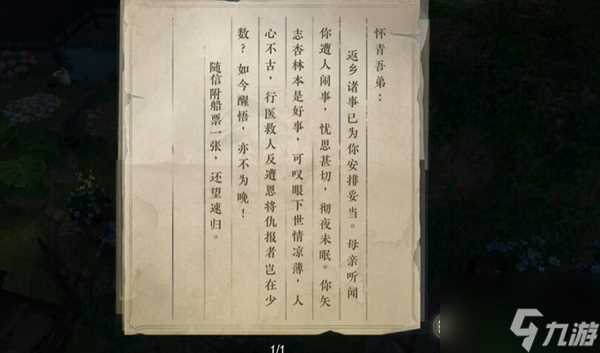 怀青吾弟：
返乡诸事已为你安排妥当。母亲听闻
你遭人闹事，忧思甚切，彻夜未眠。你矢
志杏林本是好事，可叹眼下世情凉薄，人
心不古，行医救人反遭恩将仇报者岂在少
数？如今醒悟，亦不为晚！
随信附船票一张，还望速归。
1/1
九游